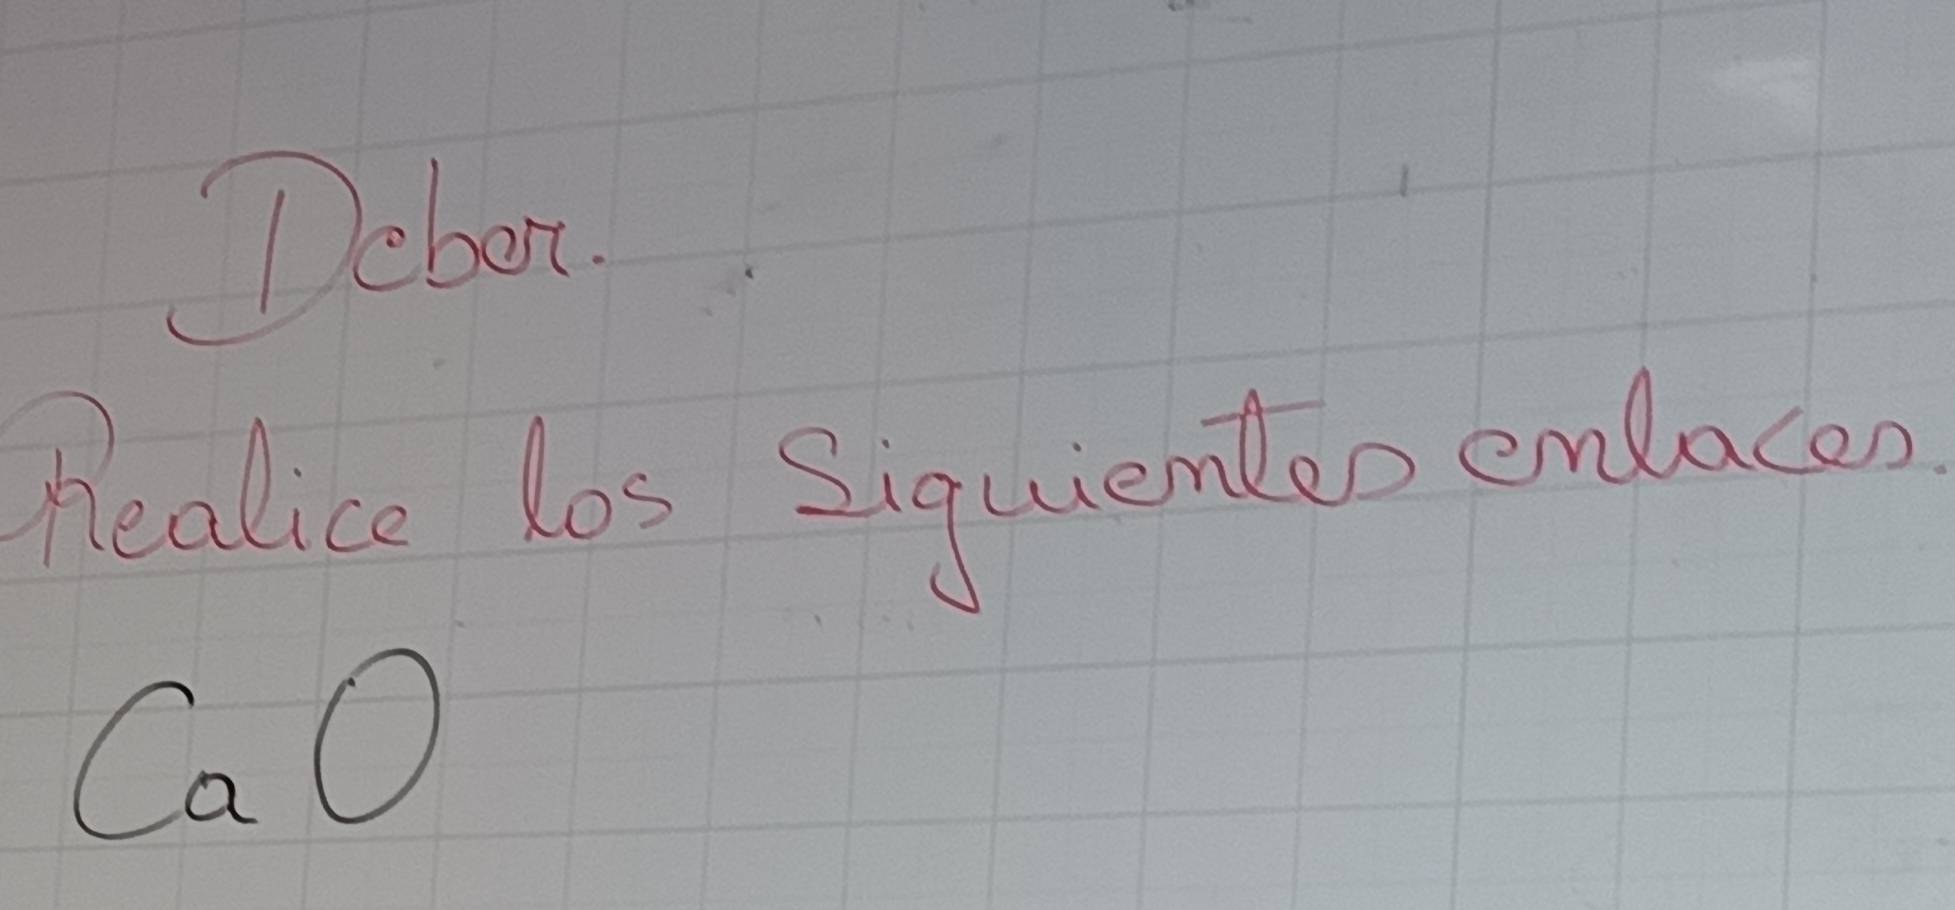 Deber.
Realice los Siguientes enlaces.
CaO